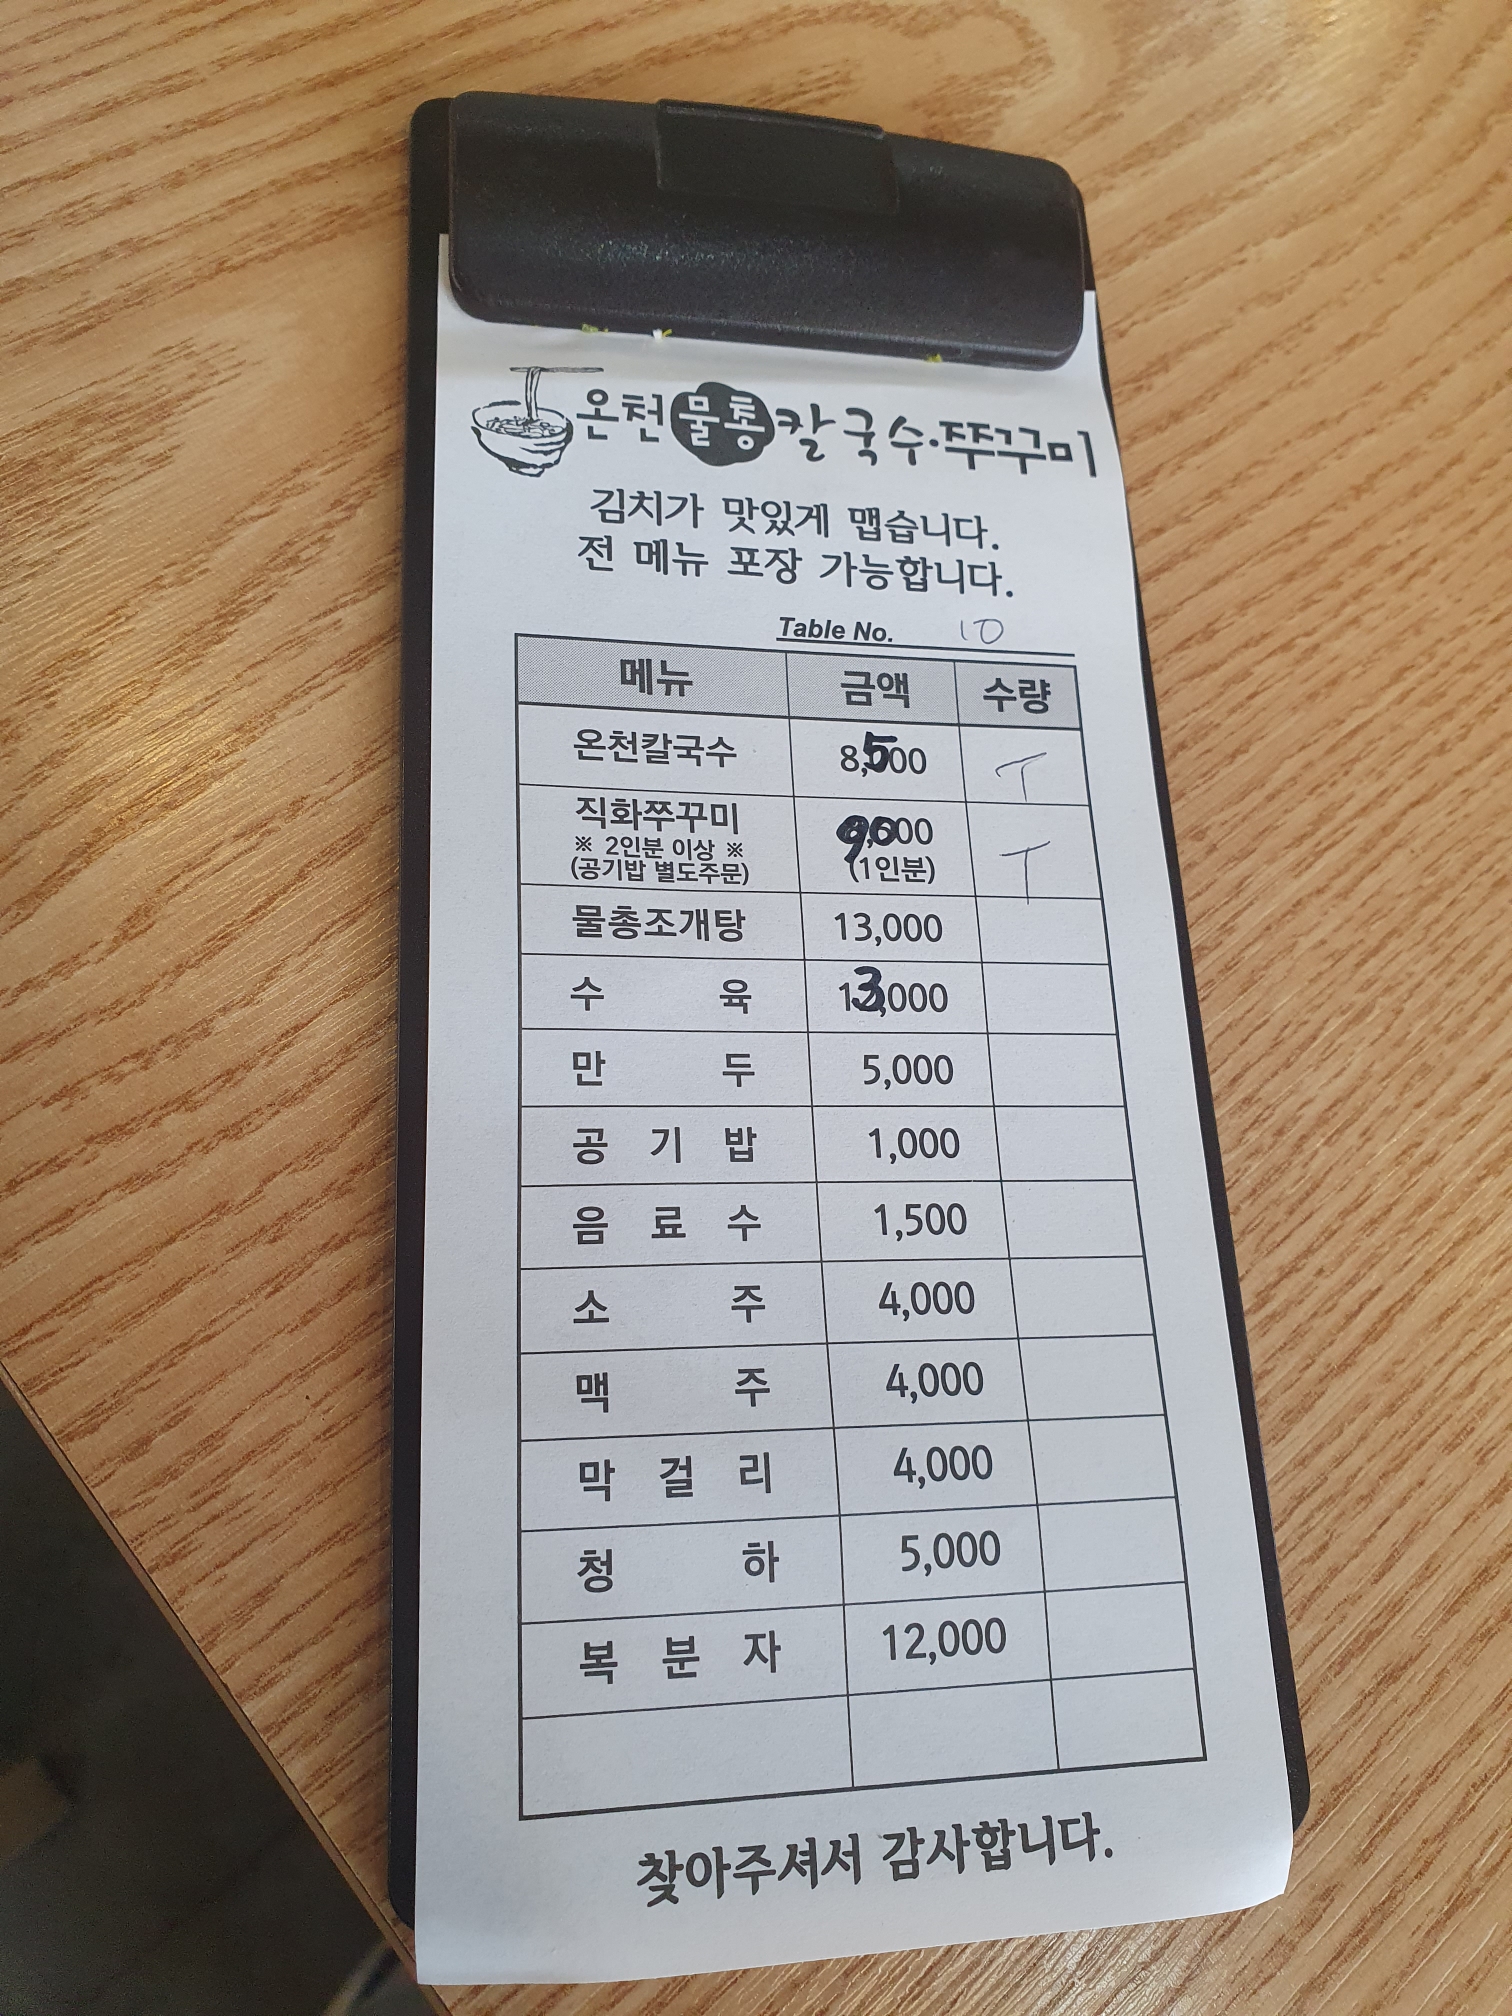 온천물총칼국수·쭈꾸미
김치가 맛있게 맵습니다.
전 메뉴 포장 가능합니다.
Table No. 10
메뉴 금액 수량
온천칼국수 8,500 T
직화쭈꾸미 9,000 T
※ 2인분 이상 ※
(공기밥 별도주문) (1인분)
물총조개탕 13,000
수육 13,000
만두 5,000
공기밥 1,000
음료수 1,500
소주 4,000
맥주 4,000
막걸리 4,000
청하 5,000
복분자 12,000
찾아주셔서 감사합니다.